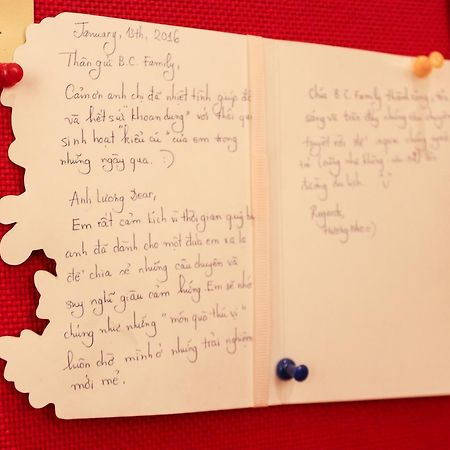 January, 13th, 2016
Thân gửi B.C. Family,
Cảm ơn anh chị đã nhiệt tình giúp đỡ
và hết sức "khoan dung" với thói quen
sinh hoạt "kiểu cú" của em trong
những ngày qua. :)
Anh Lương Dear,
Em rất cảm kích vì thời gian quý báu
anh đã dành cho một đứa em xa lạ
để chia sẻ những câu chuyện và
suy nghĩ giàu cảm hứng. Em sẽ nhớ
chúng như những "món quà thú vị"
luôn chờ mình ở những trải nghiệm
mới mẻ.
Chúc B.C. Family thành công,
sáng và tràn đầy những câu chuyện
tuyệt vời để
ta cũng như không
đường du lịch.
Regards,